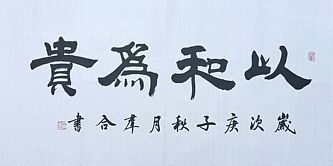 以和為貴
歲次庚子秋月峯合書